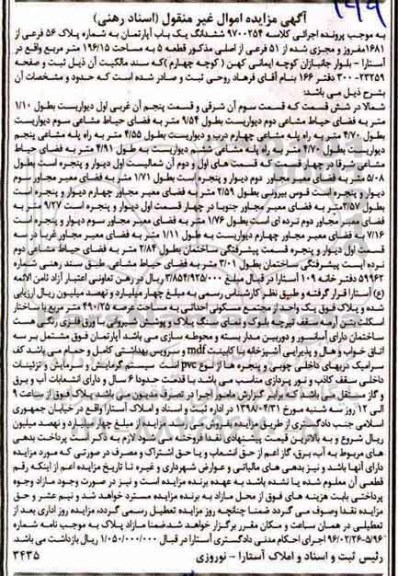 ۱۴۹
آگهی مزایده اموال غیر منقول (اسناد رهنی)
به موجب پرونده اجرائی کلاسه ۹۷۰۰۲۵۴ ششدانگ یک باب آپارتمان به شماره پلاک ۵۶ فرعی از
۱۶۸۱ مفروز و مجزی شده از ۵۱ فرعی از اصلی مذکور قطعه ۵ به مساحت ۱۹۶/۱۵ متر مربع واقع در
آستارا - بلوار جانبازان کوچه ایمانی کهن ( کوچه چهارم )که سند مالکیت آن ذیل ثبت و صفحه
۲۳۲۵۹- ۳۰۰ دفتر ۱۶۶ بنام آقای فرهاد روحی ثبت و صادر شده است که حدود و مشخصات آن
بشرح ذیل می باشد:
شمالا در شش قسمت که قسمت سوم آن شرقی و قسمت پنجم آن غربی اول دیواریست بطول ۱/۱۰
متر به فضای حیاط مشاعی دوم دیواریست بطول ۹/۵۴ متر به فضای حیاط مشاعی سوم دیواریست
بطول ۴/۷۰ متر به راه پله مشاعی چهارم درب و دیواریست بطول ۴/۵۵ متر به راه پله مشاعی پنجم
دیواریست بطول ۴/۷۰ متر به راه پله مشاعی ششم دیواریست به طول ۴/۹۱ متر به فضای حیاط
مشاعی شرقا در چهار قسمت که قسمت های اول و دوم آن شمالیست اول دیوار و پنجره است بطول
۵/۰۸ متر به فضای معبر مجاور دوم دیوار و پنجره است بطول ۱/۷۱ متر به فضای معبر مجاور سوم
دیوار و پنجره است قوس بیرونی بطول ۲/۵۹ متر به فضای معبر مجاور چهارم دیوار و پنجره است
بطول ۲/۵۷ متر به فضای معبر مجاور جنوبا در چهار قسمت اول دیوار و پنجره است ۹/۲۷ متر به
فضای معبر مجاور دوم نرده ای است بطول ۱/۷۶ متر به فضای معبر مجاور سوم دیوار و پنجره است
۷/۱۶ به فضای معبر مجاور چهارم دیواریست به طول ۱/۱۱ متر به فضای معبر مجاور غربا در سه
قسمت اول دیوار و پنجره قسمت پیشرفتگی ساختمان بطول ۲/۸۴ متر به فضای حیاط مشاعی دوم
نرده ایست پیشرفتگی ساختمان بطول ۳/۰۱ متر به فضای حیاط مشاعی طبق سند رهنی شماره
۵۹۹۶۲ دفتر خانه ۱۰۹ آستارا در قبال مبلغ ۳/۸۵۴/۹۲۵/۰۰۰ ریال در رهن تعاونی اعتبار آزاد ثامن الائمه
(ع) آستارا قرار گرفته و طبق نظر کارشناس رسمی به مبلغ چهار میلیارد و نهصد میلیون ریال ارزیابی
شده و پلاک فوق یک واحد از مجتمع مسکونی احداثی به مساحت عرصه ۴۹۰/۲۵ متر مربع با ساختار
اسکلت بتن آرمه سقف تیرچه بلوک و نمای سنگ پلاک و پوشش شیروانی با ورق فلزی رنگی هست
ساختمان دارای آسانسور و دوربین مدار بسته و محوطه سازی می باشد آپارتمان فوق مشتمل بر سه
اتاق خواب و هال و پذیرایی آشپزخانه با کابینت mdf و سرویس بهداشتی کامل و حمام می باشد کف
سرامیک دربهای داخلی چوبی و پنجره ها از نوع pvc است سیستم گرمایش و سرمایش و تزئینات
داخلی سقف کاذب و نور پردازی مناسب می باشد با قدمت حدودا ۶ سال و دارای انشعابات آب و برق
و گاز مستقل می باشد که برابر گزارش مامور اجرا در تصرف مدیون می باشد پلاک فوق از ساعت ۹
الی ۱۲ روز سه شنبه مورخ ۱۳۹۸/۰۴/۳۱ در اداره ثبت و اسناد و املاک آستارا واقع در خیابان جمهوری
اسلامی جنب دادگستری از طریق مزایده به فروش می رسد مزایده از مبلغ چهار میلیارد و نهصد میلیون
ریال شروع و به بالاترین قیمت پیشنهادی نقدا فروخته می شود لازم به ذکر است پرداخت بدهی
های مربوط به آب برق، گاز اعم از حق انشعاب و یا حق اشتراک و مصرف در صورتی که مورد مزایده
دارای آنها باشد و نیز بدهی های مالیاتی و عوارض شهرداری و غیره تا تاریخ مزایده اعم از اینکه رقم
قطعی آن معلوم شده یا نشده باشد به عهده برنده مزایده است و نیز در صورت وجود مازاد وجوه
پرداختی بابت هزینه های فوق از محل مازاد به برنده مزایده مسترد خواهد شد و نیم عشر و حق
مزایده نقدا وصول می گردد ضمنا چنانچه روز مزایده تعطیل رسمی گردد، مزایده روز اداری بعد از
تعطیلی در همان ساعت و مکان مقرر برگزار خواهد شد ضمنا مازاد پلاک به موجب نامه شماره
۵/۹۶-۹۶/۰۲/۲۶ اجرای احکام مدنی دادگستری آستارا در قبال ۱/۰۵۰/۰۰۰/۰۰۰ ریال بازداشت می باشد.
رئیس ثبت و اسناد و املاک آستارا - نوروزی ۳۴۳۵